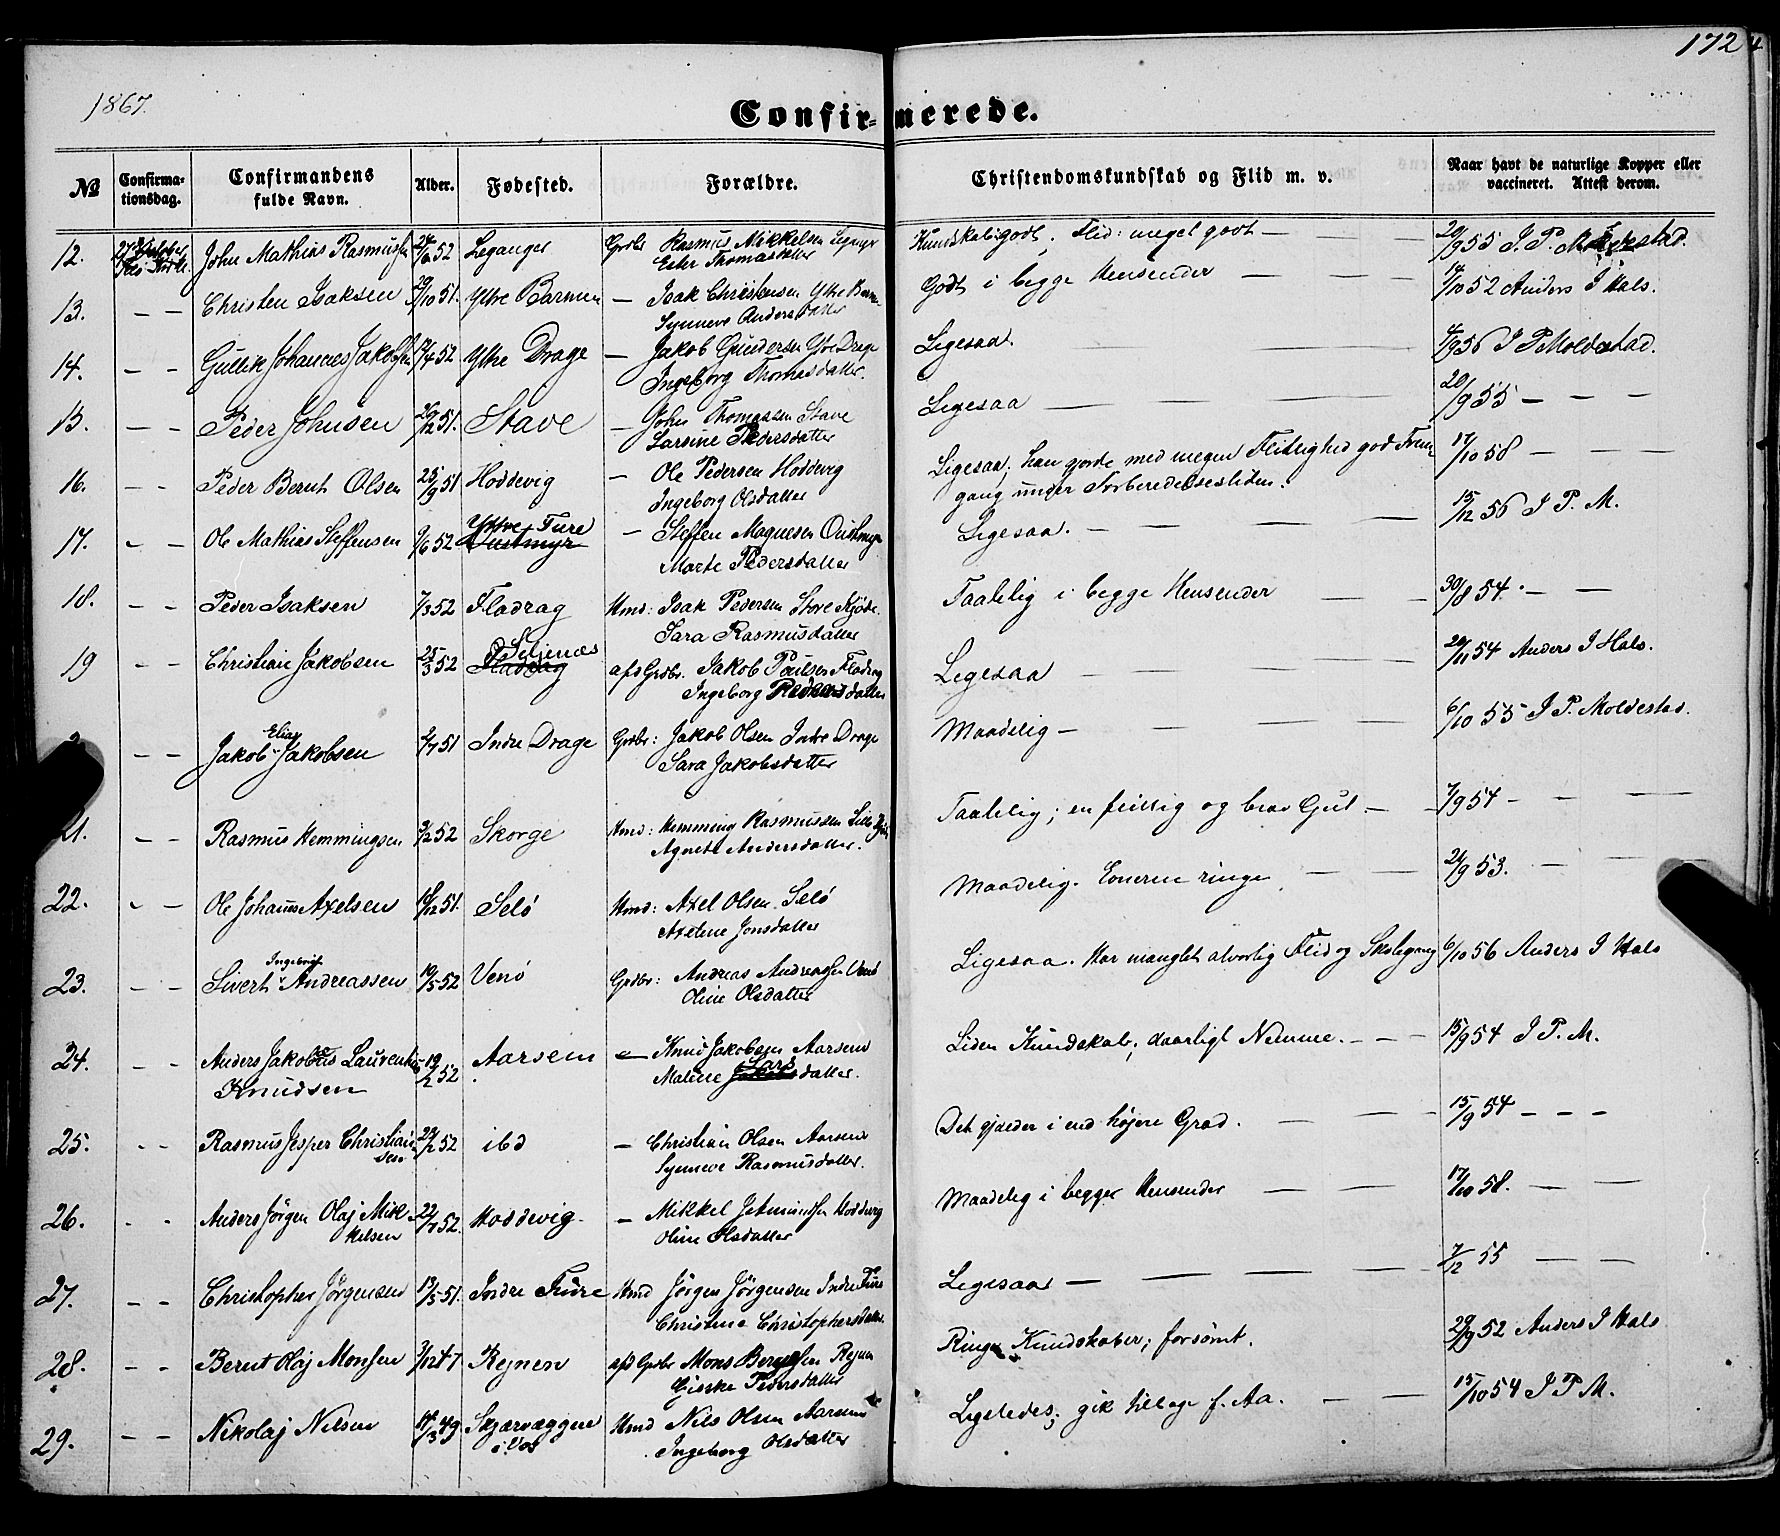 172
1867.
Confirmerede.
№ Confirmationsdag. Confirmandens fulde Navn. Alder. Fødested. Forældre. Christendomskundskab og Flid m. v. Naar havt de naturlige Kopper eller vaccineret. Attest derom.
12. John Mathias Rasmussen 24/6 52 Leganger Grdbr Rasmus Mikkelsen Legngr Kundskab: godt. Flid: meget godt — — — 20/9 55 I. P. Moldestad.
Ester Thomasdatter
13. — — Christen Isaksen 29/10 51. Ytre Barmen — Isak Christensen Ytre Barm Godt i begge Hensender — — — 14/10 52 Anders I Hals.
Synneve Andersdatter
14. — — Gullik Johannes Jakobsen 12/4 52 Ytre Drage — Jakob Gundersen Ytre Drage Ligesaa. — — — 4/9 56 I P Moldestad.
Ingeborg Thomasdatter.
15. — — Peder Johnsen 26/12 51. Stave — John Thomassen Stave Ligesaa — — — 20/9 55 — — —
Larsine Pedersdatter
16. — — Peder Bernt Olsen 25/9 51 Hoddevig — Ole Pedersen Hoddevig Ligesaa; han gjorde med megen Flittighed god Frem- 17/10 58 — — —
Ingeborg Olsdatter gang under Forberedelsestiden.
17. — — Ole Mathias Steffensen 7/6 52 Ytre Fure — Steffen Magnesen Oustmyr Ligesaa. — — — 15/12 56 I P. M.
Oustmyr Marte Pedersdatter
18. — — Peder Isaksen 7/3 52 Fladrag Hmd: Isak Pedersen Store Kjøde. Taalelig i begge Hensender — — 30/8 54. — —
Sara Rasmusdatter
19 Christian Jakobsen 25/3 52 Seljenes afs Grdbr. Jakob Paulsen Fladrag Ligesaa — — — 20/11 54 Anders I Hals.
Fladrag Ingeborg datter
— — Jakob Elias Jakobsen 2/7 51 Indre Drage Grdbr: Jakob Olsen Indre Drage Maadelig — — — 6/10 55 I P. Moldestad.
Sara Jakobsdatter
21. — — Rasmus Hemmingsen 3/12 52 Skorge Hmd: Hemming Rasmussen Taalelig; en flittig og brav Gut — — 7/9 54 — — —
Agnete Andersdatter.
22. — — Ole Johannes Axelsen 18/12 51. Selø Hmd: Axel Olsen Selø Maadelig. Evnerne ringe — — 24/9 53. — —
Axeline Jonsdatter
23. — — Sivert Ingebrigt Andreassen 19/5 52 Venø Grdbr: Andreas Andreassen Venø Ligesaa. Har manglet alvorlig Flid og Skolegang 6/10 56 Anders I Hals
Oline Olsdatter
24. — — Anders Jakobus Laurentius 19/2 52 Aarsem — Knud Jakobsen Aarsem Liden Kundskab; daarligt Nemme. — — — 15/9 54 I P. M.
Knudsen Malene Larsdatter.
25. — — Rasmus Jesper Christian- 24/2 52 ibd — Christian Olsen Aarsem Det gjælder i end højere Grad. — — — 15/9 54 — — —
sen Synneve Rasmusdatter.
26. — — Anders Jørgen Olaj Mik- 22/7 52. Hoddevig — Mikkel Jetmundsen Hoddevig Maadelig i begge Hensender — — — 17/10 58. — —
kelsen Oline Olsdatter
27. — — Christopher Jørgensen 13/5 51. Indre Fure Hmd Jørgen Jørgensen Indre Fure Ligesaa — — — 7/12 55 — —
Christine Christophersdatter
28. — — Bernt Olaj Monsen 3/12 47 Rejnen afs Grdbr Mons Berntsen Rejnen Ringe Kundskaber; forsømt. 29/9 52 Anders I Hals
Giøske Pedersdatter
29. — — Nikolaj Nilsen 14/3 49 Skjærvæggen Hmd Nils Olsen Aarsem Ligeledes; gik tillige f. Aa. — — 15/10 54 I P M.
Ingeborg Olsdatter